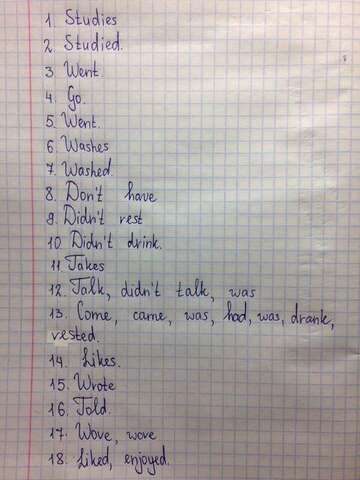 1. Studies
2. Studied.
3. Went.
4. Go.
5. Went.
6. Washes
7. Washed.
8. Don't have
9. Didn't rest
10 Didn't drink.
11. Takes
12. Talk, didn't talk, was
13. Come, came, was, had, was, drank,
rested.
14. Likes.
15. Wrote
16. Told.
17. Wove, wove
18. Liked, enjoyed.